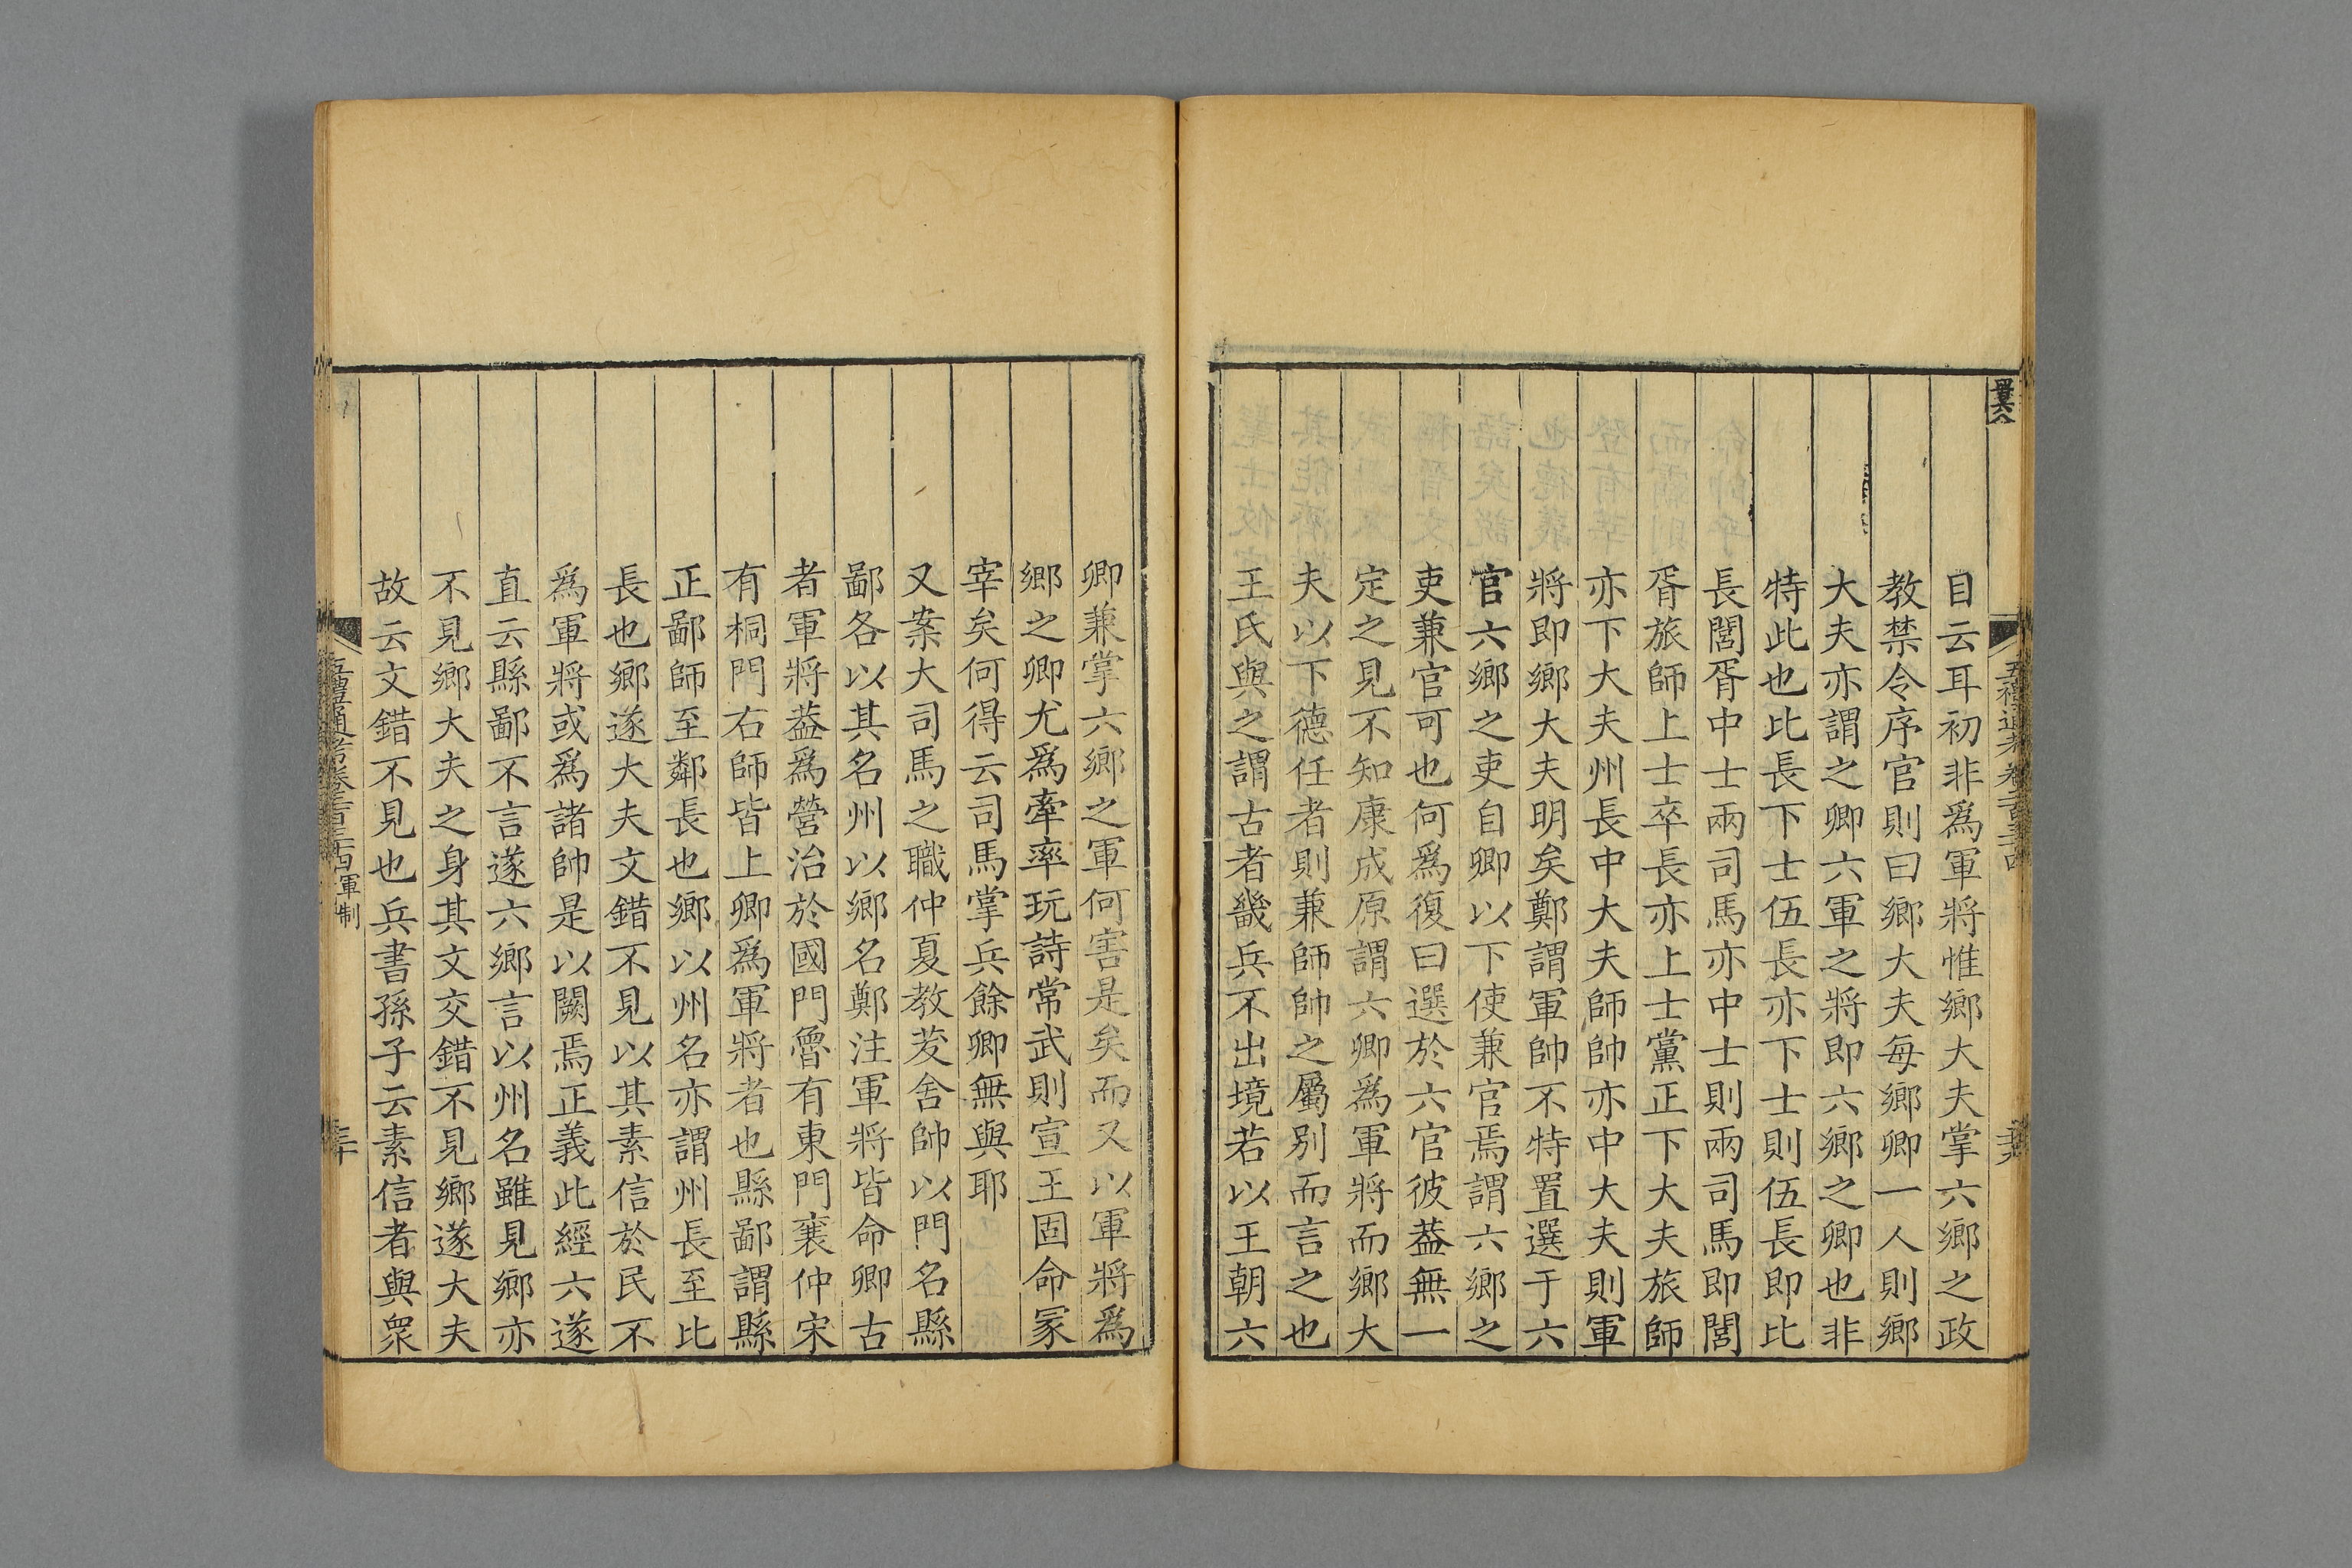 自云耳初非爲軍將惟鄉大夫掌六鄉之政
教禁令序官則曰鄉大夫每鄉卿一人則鄉
大夫亦謂之卿六軍之將即六鄉之卿也非
特此也比長下士伍長亦下士則伍長即比
長閭胥中士兩司馬亦中士則兩司馬即閭
胥旅師上士卒長亦上士黨正下大夫旅師
亦下大夫州長中大夫師帥亦中大夫則軍
將即鄉大夫明矣鄭謂軍帥不特置選于六
官六鄉之吏自卿以下使兼官焉謂六鄉之
吏兼官可也何爲復曰選於六官彼葢無一
定之見不知康成原謂六卿爲軍將而鄉大
夫以下德任者則兼師帥之屬别而言之也
王氏與之謂古者畿兵不出境若以王朝六
卿兼掌六鄉之軍何害是矣而又以軍將爲
鄉之卿尤爲牽率玩詩常武則宣王固命冢
宰矣何得云司馬掌兵餘卿無與耶
又案大司馬之職仲夏教茇舍帥以門名縣
鄙各以其名州以鄉名鄭注軍將皆命卿古
者軍將葢爲營治於國門魯有東門襄仲宋
有桐門右師皆上卿爲軍將者也縣鄙謂縣
正鄙師至鄰長也鄉以州名亦謂州長至比
長也鄉遂大夫文錯不見以其素信於民不
爲軍將或爲諸帥是以闕焉正義此經六遂
直云縣鄙不言遂六鄉言以州名雖見鄉亦
不見鄉大夫之身其文交錯不見鄉遂大夫
故云文錯不見也兵書孫子云素信者與衆
五禮通考卷二百三十四軍制
三十